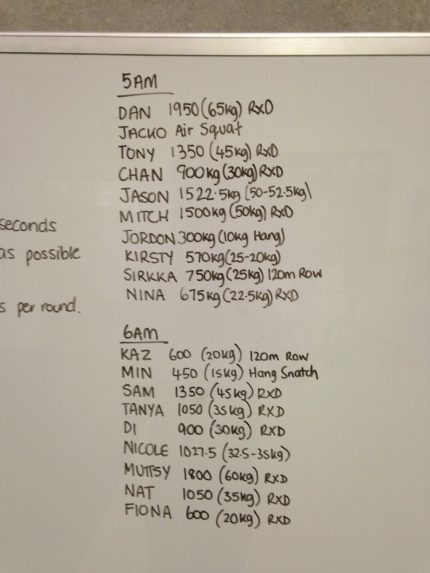 5AM
DAN 1950 (65kg) RXD
JACKO Air Squat
TONY 1350 (45kg) RXD
CHAN 900kg (30kg) RXD
JASON 1522.5kg (50-52.5kg)
seconds
MITCH 1500kg (50kg) RXD
JORDON 300kg (10kg Hang)
as possible
KIRSTY 570kg (25-20kg)
SIRKKA 750kg (25kg) 120m Row
NINA 675kg (22.5kg) RXD
s per round.
6AM
KAZ 600 (20kg) 120m Row
MIN 450 (15kg) Hang Snatch
SAM 1350 (45kg) RXD
TANYA 1050 (35kg) RXD
DI 900 (30kg) RXD
NICOLE 1027.5 (32.5-35kg)
MUTTSY 1800 (60kg) RXD
NAT 1050 (35kg) RXD
FIONA 600 (20kg) RXD